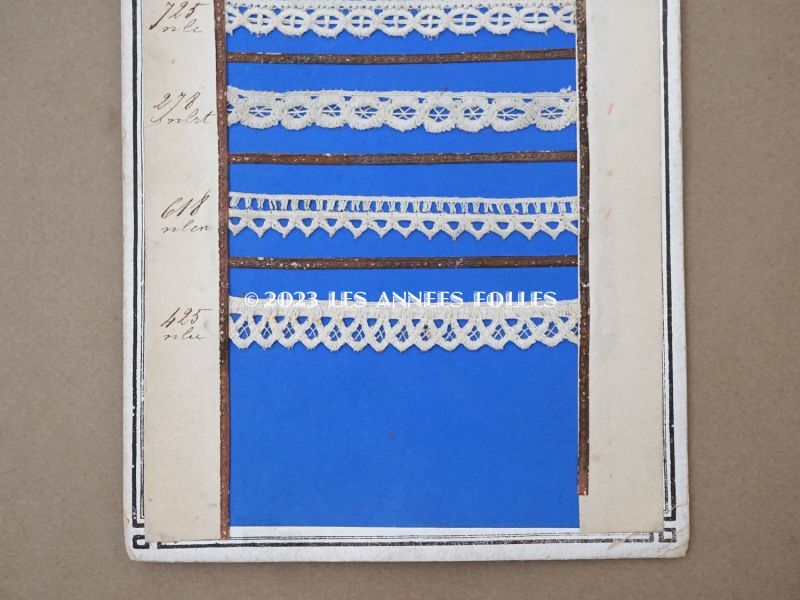 725
nlc
278
nlrt
618
nlcn
© 2023 LES ANNEES FOLLES
425
nlu